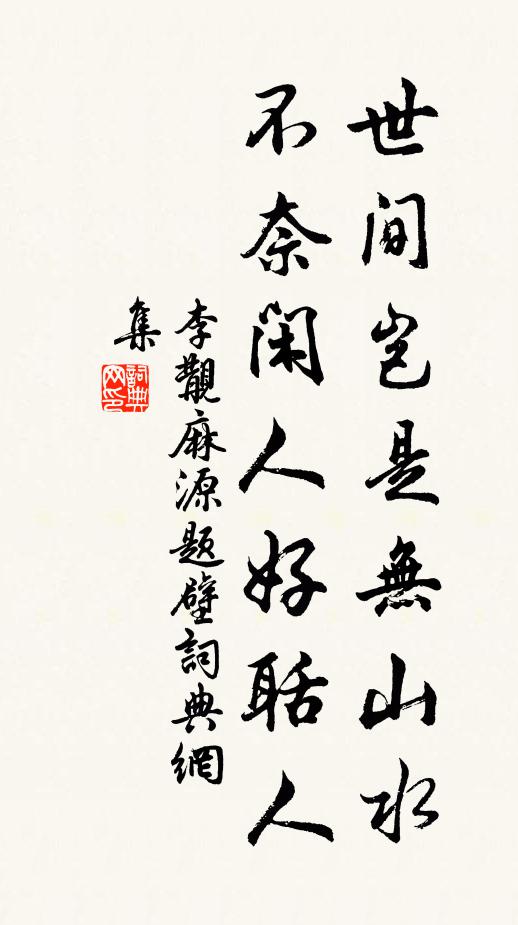 世間岂是無山水
不奈閑人好聒人
李覯麻源題壁詞典網
集
詞典
网印